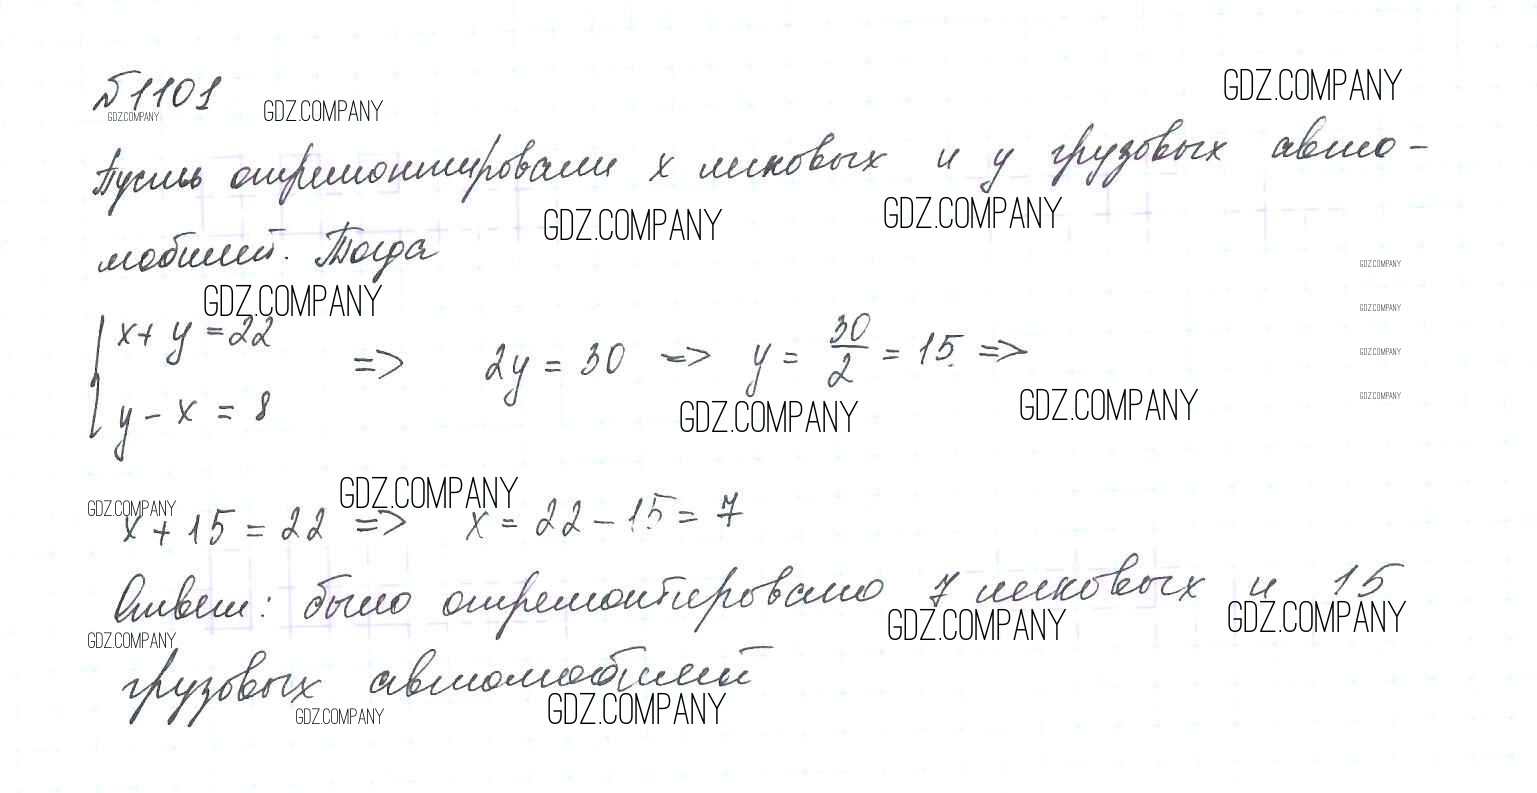 №1101
GDZ.COMPANY GDZ.COMPANY GDZ.COMPANY
Пусть отремонтировали x легковых и y грузовых авто-
GDZ.COMPANY GDZ.COMPANY
мобилей. Тогда
GDZ.COMPANY
GDZ.COMPANY
GDZ.COMPANY
x + y = 22
y - x = 8
=> 2y = 30 => y = 30/2 = 15 =>
GDZ.COMPANY
GDZ.COMPANY
GDZ.COMPANY GDZ.COMPANY
GDZ.COMPANY GDZ.COMPANY
x + 15 = 22 => x = 22 - 15 = 7
Ответ: было отремонтировано 7 легковых и 15
GDZ.COMPANY GDZ.COMPANY GDZ.COMPANY
грузовых автомобилей
GDZ.COMPANY GDZ.COMPANY